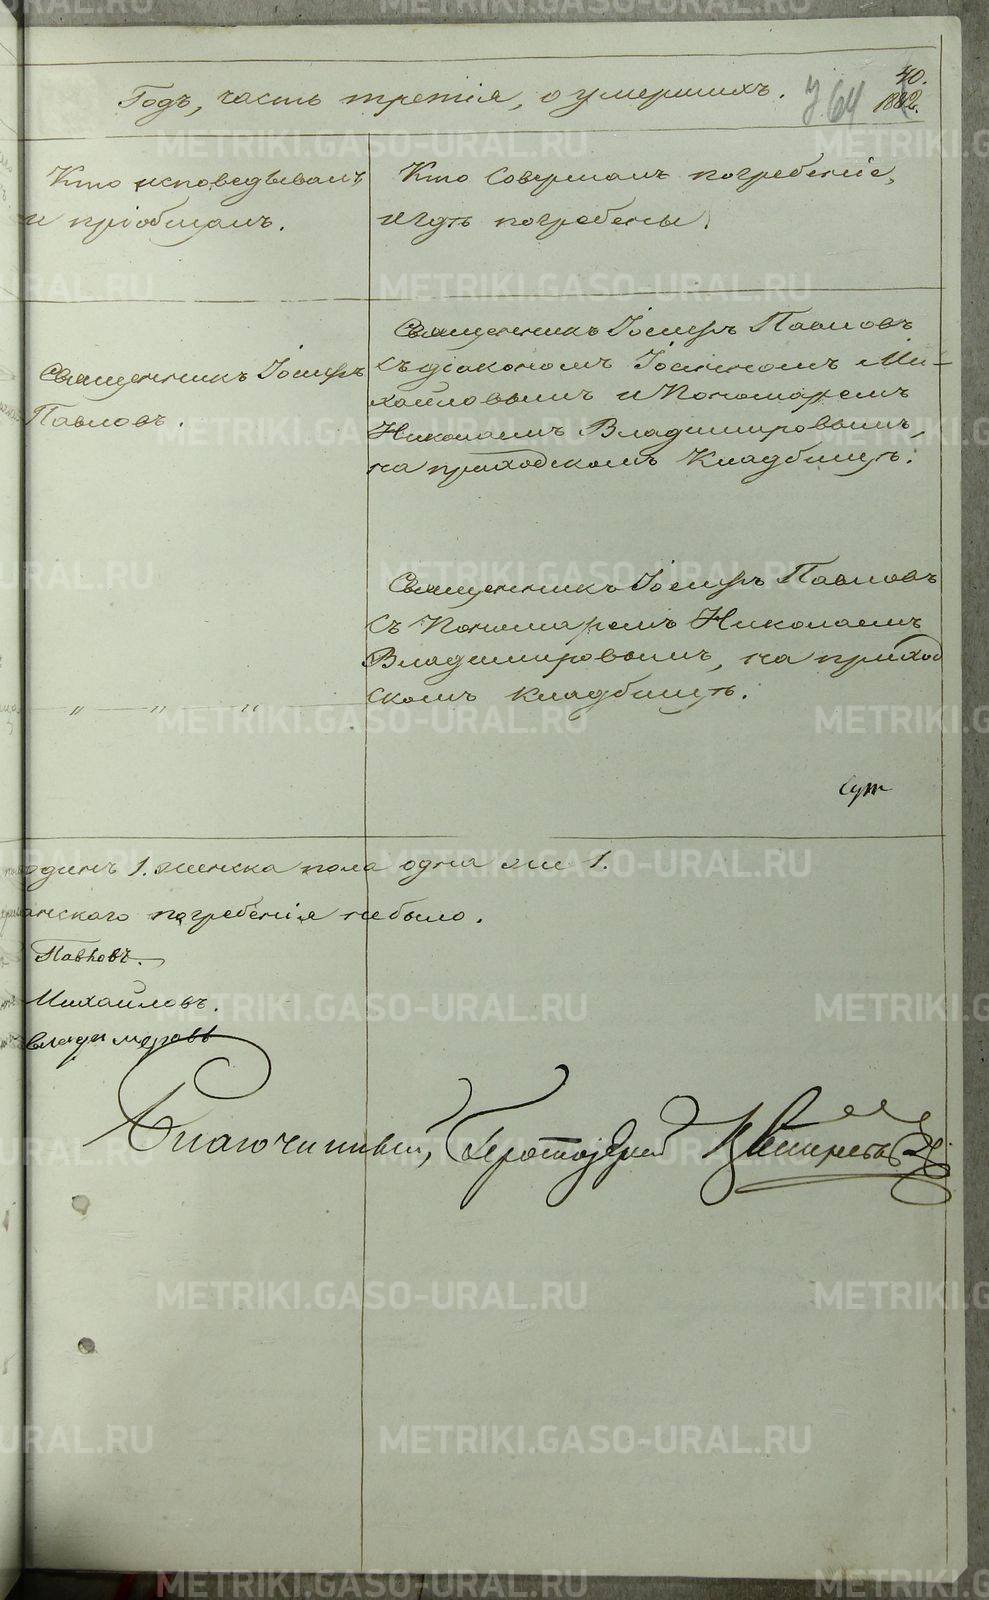 40.
Годъ, часть третія, о умершихъ. 764 1882.
Кто исповѣдывалъ
и пріобщалъ.
Кто совершалъ погребеніе,
и гдѣ погребены.
Священникъ Іосифъ
Павловъ.
Священникъ Іосифъ Павловъ
съ діакономъ Іоанномъ Ми-
хайловымъ и Пономаремъ
Николаемъ Владимировымъ,
на приходскомъ Кладбищѣ.
Священникъ Іосифъ Павловъ
съ Пономаремъ Николаемъ
Владимировымъ, на приход
скомъ кладбищѣ.
„ — „ — „
одинъ 1. женска пола одна же 1.
погребенія небыло.
Павловъ.
Михайловъ.
Владимеровъ
Благочинный, Протоіерей
METRIKI.GASO-URAL.RU